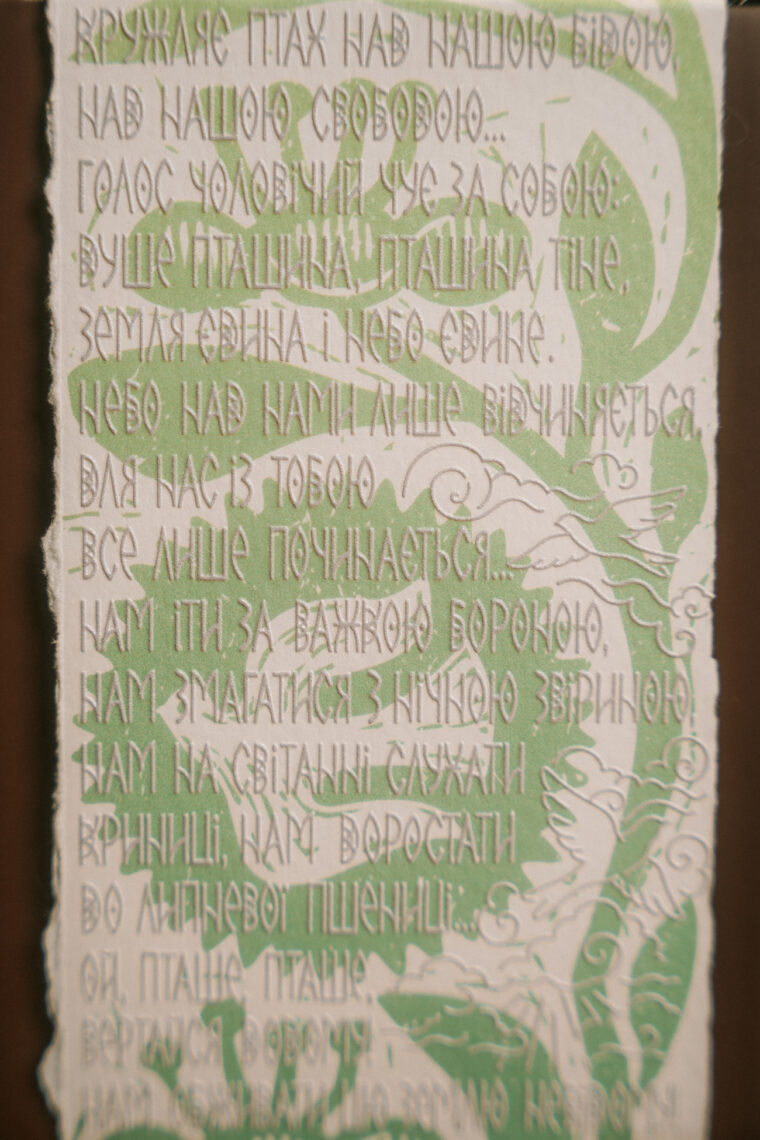 КРУЖЛЯЄ ПТАХ НАД НАШОЮ БІДОЮ,
НАД НАШОЮ СВОБОДОЮ...
ГОЛОС ЧОЛОВІЧИЙ ЧУЄ ЗА СОБОЮ:
ДУШЕ ПТАШИНА, ПТАШИНА ТІНЕ,
ЗЕМЛЯ ЄДИНА І НЕБО ЄДИНЕ.
НЕБО НАД НАМИ ЛИШЕ ВІДЧИНЯЄТЬСЯ,
ДЛЯ НАС ІЗ ТОБОЮ
ВСЕ ЛИШЕ ПОЧИНАЄТЬСЯ...
НАМ ІТИ ЗА ВАЖКОЮ БОРОНОЮ,
НАМ ЗМАГАТИСЯ З НІЧНОЮ ЗВІРИНОЮ,
НАМ НА СВІТАННІ СЛУХАТИ
КРИНИЦІ, НАМ ДОРОСТАТИ
ДО ЛИПНЕВОЇ ПШЕНИЦІ...
ОЙ, ПТАШЕ, ПТАШЕ,
ВЕРТАЙСЯ ДОДОМУ!
НАМ ОБЖИВАТИ ЦЮ ЗЕМЛЮ